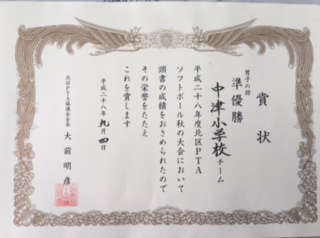 賞状
男子の部
準優勝
中津小学校チーム
平成二十八年度北区PTA
ソフトボール秋の大会において
頭書の成績をおさめられたので
その栄誉をたたえ
これを賞します
平成二十八年九月四日
北区PTA協議会会長 大前明彦